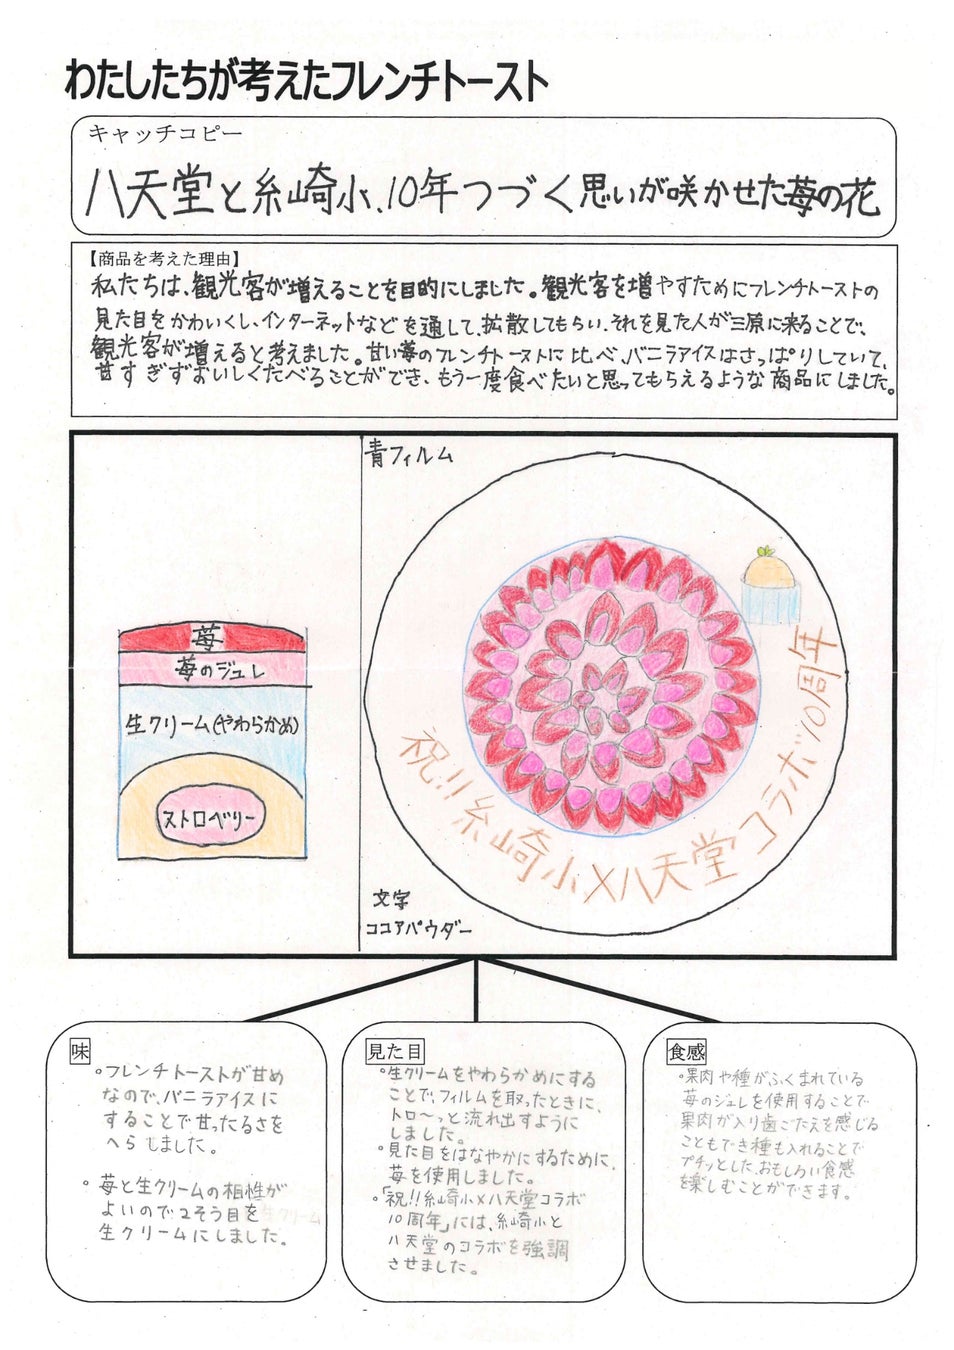 わたしたちが考えたフレンチトースト
キャッチコピー
八天堂と糸崎小、10年つづく思いが咲かせた苺の花
【商品を考えた理由】
私たちは、観光客が増えることを目的にしました。観光客を増やすためにフレンチトーストの
見た目をかわいくし、インターネットなどを通して、拡散してもらい、それを見た人が三原に来ることで、
観光客が増えると考えました。甘い苺のフレンチトーストに比べ、バニラアイスはさっぱりしていて、
甘すぎずおいしくたべることができ、もう一度食べたいと思ってもらえるような商品にしました。
苺
苺のジュレ
生クリーム(やわらかめ)
ストロベリー
青フィルム
祝!!糸崎小×八天堂コラボ10周年
文字
ココアパウダー
味
・フレンチトーストが甘め
なので、バニラアイスに
することで甘ったるさを
へらしました。
・苺と生クリームの相性が
よいので2そう目を
生クリームにしました。
見た目
・生クリームをやわらかめにする
ことで、フィルムを取ったときに、
トロ〜っと流れ出すように
しました。
・見た目をはなやかにするために、
苺を使用しました。
・「祝!!糸崎小×八天堂コラボ
10周年」には、糸崎小と
八天堂のコラボを強調
させました。
食感
・果肉や種がふくまれている
苺のジュレを使用することで
果肉が入り歯ごたえを感じる
こともでき種も入れることで
プチッとした、おもしろい食感
を楽しむことができます。